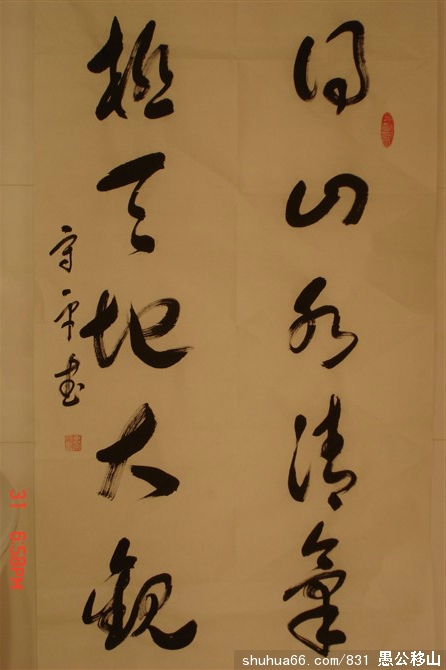 得山水清氣
極天地大觀
守平書
31 6:58PM
shuhua66.com/831 愚公移山